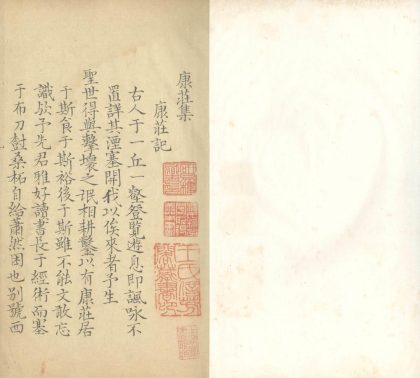 康莊集
康莊記
古人于一丘一壑登覽遊息即諷咏不
置詳其湮塞開我以俟來者予生
聖世得與擊壤之氓相耕鑿以有康莊居
于斯食于斯裕後于斯雖不能文敢忘
識欤予先君雅好讀書長于經術而塞
于布刀尌桑柘自給蕭然困也别號西